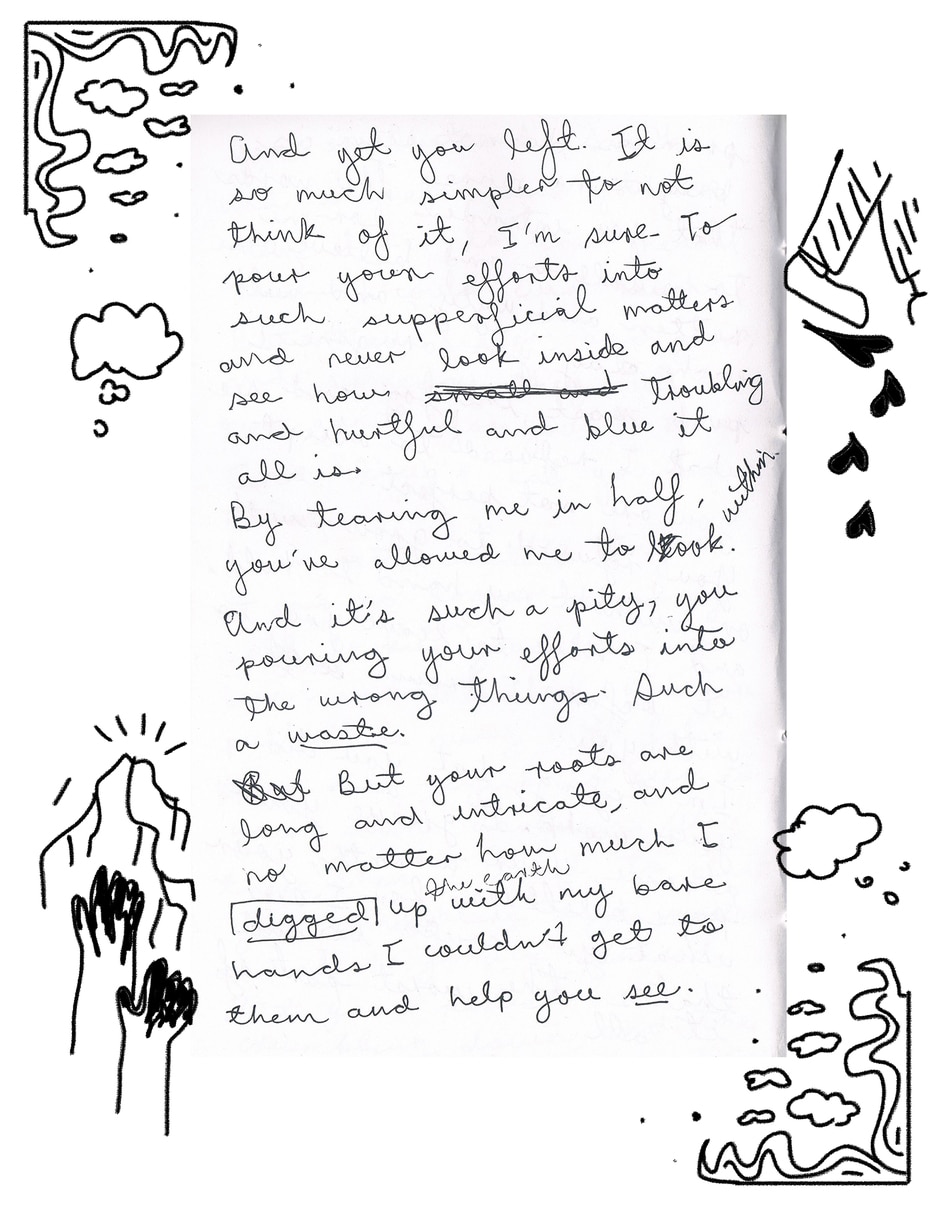 And yet you left. It is
so much simpler to not
think of it, I'm sure. To
pour your efforts into
such supperficial matters
and never look inside and
see how small and troubling
and hurtful and blue it
all is.
By tearing me in half,
you've allowed me to look. within.
And it's such a pity, you
pouring your efforts into
the wrong things. Such
a waste.
But But your roots are
long and intricate, and
no matter how much I
the earth
digged up with my bare
hands I couldn't get to
them and help you see.